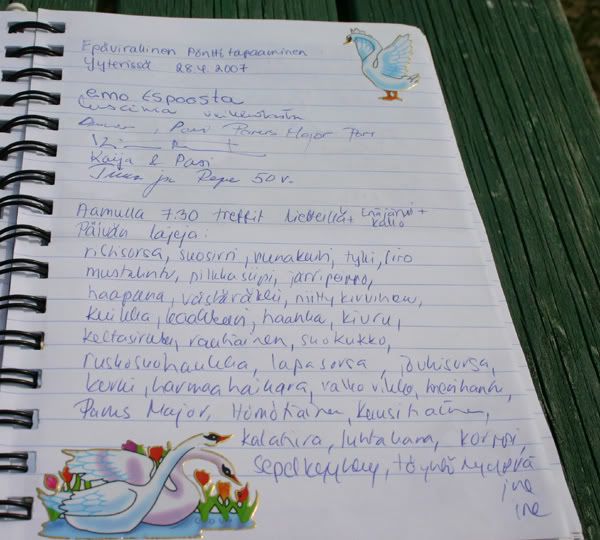 Epävirallinen pönttitapaaminen
Yyterissä 28.4.2007
emo Espoosta
Luscinia
, Pasi Parus Major Pori
Kaija & Pasi
ja Repe 50 v.
Aamulla 7.30 treffit Enäjärvi +
Päivän lajeja:
riclisorsa, suosirri, punakuiri, tylli, liro
mustalintu, pilkkasiipi, järripeippo,
haapana, västäräkki, niittykirvinen,
kuikka, haahka, kiuru,
keltasirkku, rautiainen, suokukko,
ruskosuohaukka, lapasorsa, jouhisorsa,
kurki, harmaahaikara, valkoviklo, merihanhi,
Parus Major, Hömötiainen, kuusitiainen,
kalatiira, luhtakana, korppi,
sepelkyyhky, töyhtöhyyppä
jne
jne